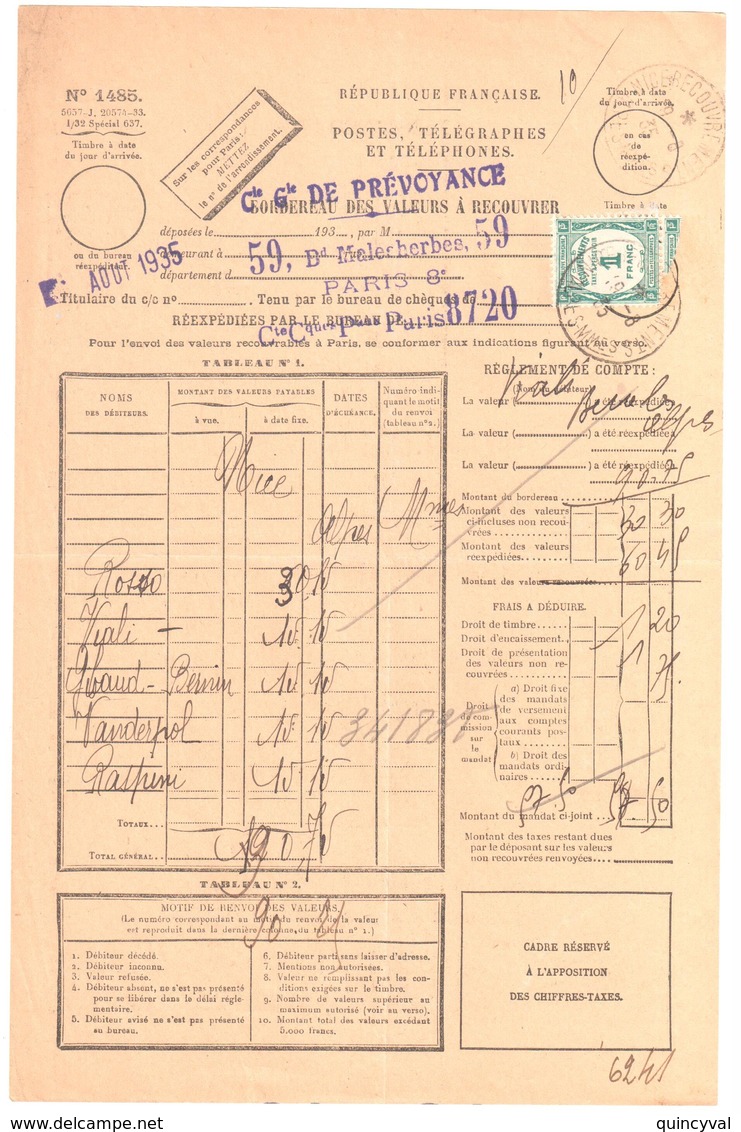 Nº 1485.
5057-J. 20574-33.
1/32 Spécial 657.
Timbre à date
du jour d'arrivée.
ou du bureau
réexpéditeur.
Sur les correspondances
pour Paris :
METTEZ
le nº de l'arrondissement.
10
RÉPUBLIQUE FRANÇAISE.
POSTES, TÉLÉGRAPHES
ET TÉLÉPHONES.
Timbre à date
du jour d'arrivée.
en cas
de
réexpé-
dition.
Timbre à date
Cie Gle DE PRÉVOYANCE
BORDEREAU DES VALEURS À RECOUVRER
déposées le 193 , par M
demeurant à
59, Bd Malesherbes, 59
AOUT 1935
département d
PARIS 8e
Titulaire du c/c nº Tenu par le bureau de chèques de
Cte Cques Paux Paris 8720
RÉEXPÉDIÉES PAR LE BUREAU DE
1 FRANC
Pour l'envoi des valeurs recouvrables à Paris, se conformer aux indications figurant au verso.
TABLEAU Nº 1.
NOMS
DES DÉBITEURS.
MONTANT DES VALEURS PAYABLES
à vue.
à date fixe.
DATES
D'ÉCHÉANCE.
Numéro indi-
quant le motif
du renvoi
(tableau nº 2.)
Nice
Alpes Mmes
Viali - 15 15
Giraud - Bernin 15 15
Vanderpol 15 15
Raspini 15 15
TOTAUX...
TOTAL GÉNÉRAL... 90,75
RÈGLEMENT DE COMPTE :
(Nom du débiteur)
La valeur ( ) a été réexpédiée
La valeur ( ) a été réexpédiée
La valeur ( ) a été réexpédiée
90.75
Montant du bordereau
Montant des valeurs
ci-incluses non recou-
vrées 30 30
Montant des valeurs
réexpédiées. 60 45
Montant des valeurs recouvrées.
FRAIS A DÉDUIRE.
Droit de timbre. 1 20
Droit d'encaissement.
Droit de présentation
des valeurs non re-
couvrées 1 75
Droit
de com-
mission
sur
le
mandat
a) Droit fixe
des mandats
de versement
aux comptes
courants pos-
taux
b) Droit des
mandats ordi-
naires
Montant du mandat ci-joint 57.50 57.50
Montant des taxes restant dues
par le déposant sur les valeurs
non recouvrées renvoyées.
TABLEAU Nº 2.
MOTIF DE RENVOI DES VALEURS.
(Le numéro correspondant au motif du renvoi de la valeur
est reproduit dans la dernière colonne du tableau nº 1.)
1. Débiteur décédé.
2. Débiteur inconnu.
3. Valeur refusée.
4. Débiteur absent, ne s'est pas présenté
pour se libérer dans le délai régle-
mentaire.
5. Débiteur avisé ne s'est pas présenté
au bureau.
6. Débiteur parti sans laisser d'adresse.
7. Mentions non autorisées.
8. Valeur ne remplissant pas les con-
ditions exigées sur le timbre.
9. Nombre de valeurs supérieur au
maximum autorisé (voir au verso).
10. Montant total des valeurs excédant
5.000 francs.
CADRE RÉSERVÉ
À L'APPOSITION
DES CHIFFRES-TAXES.
6241
quincyval